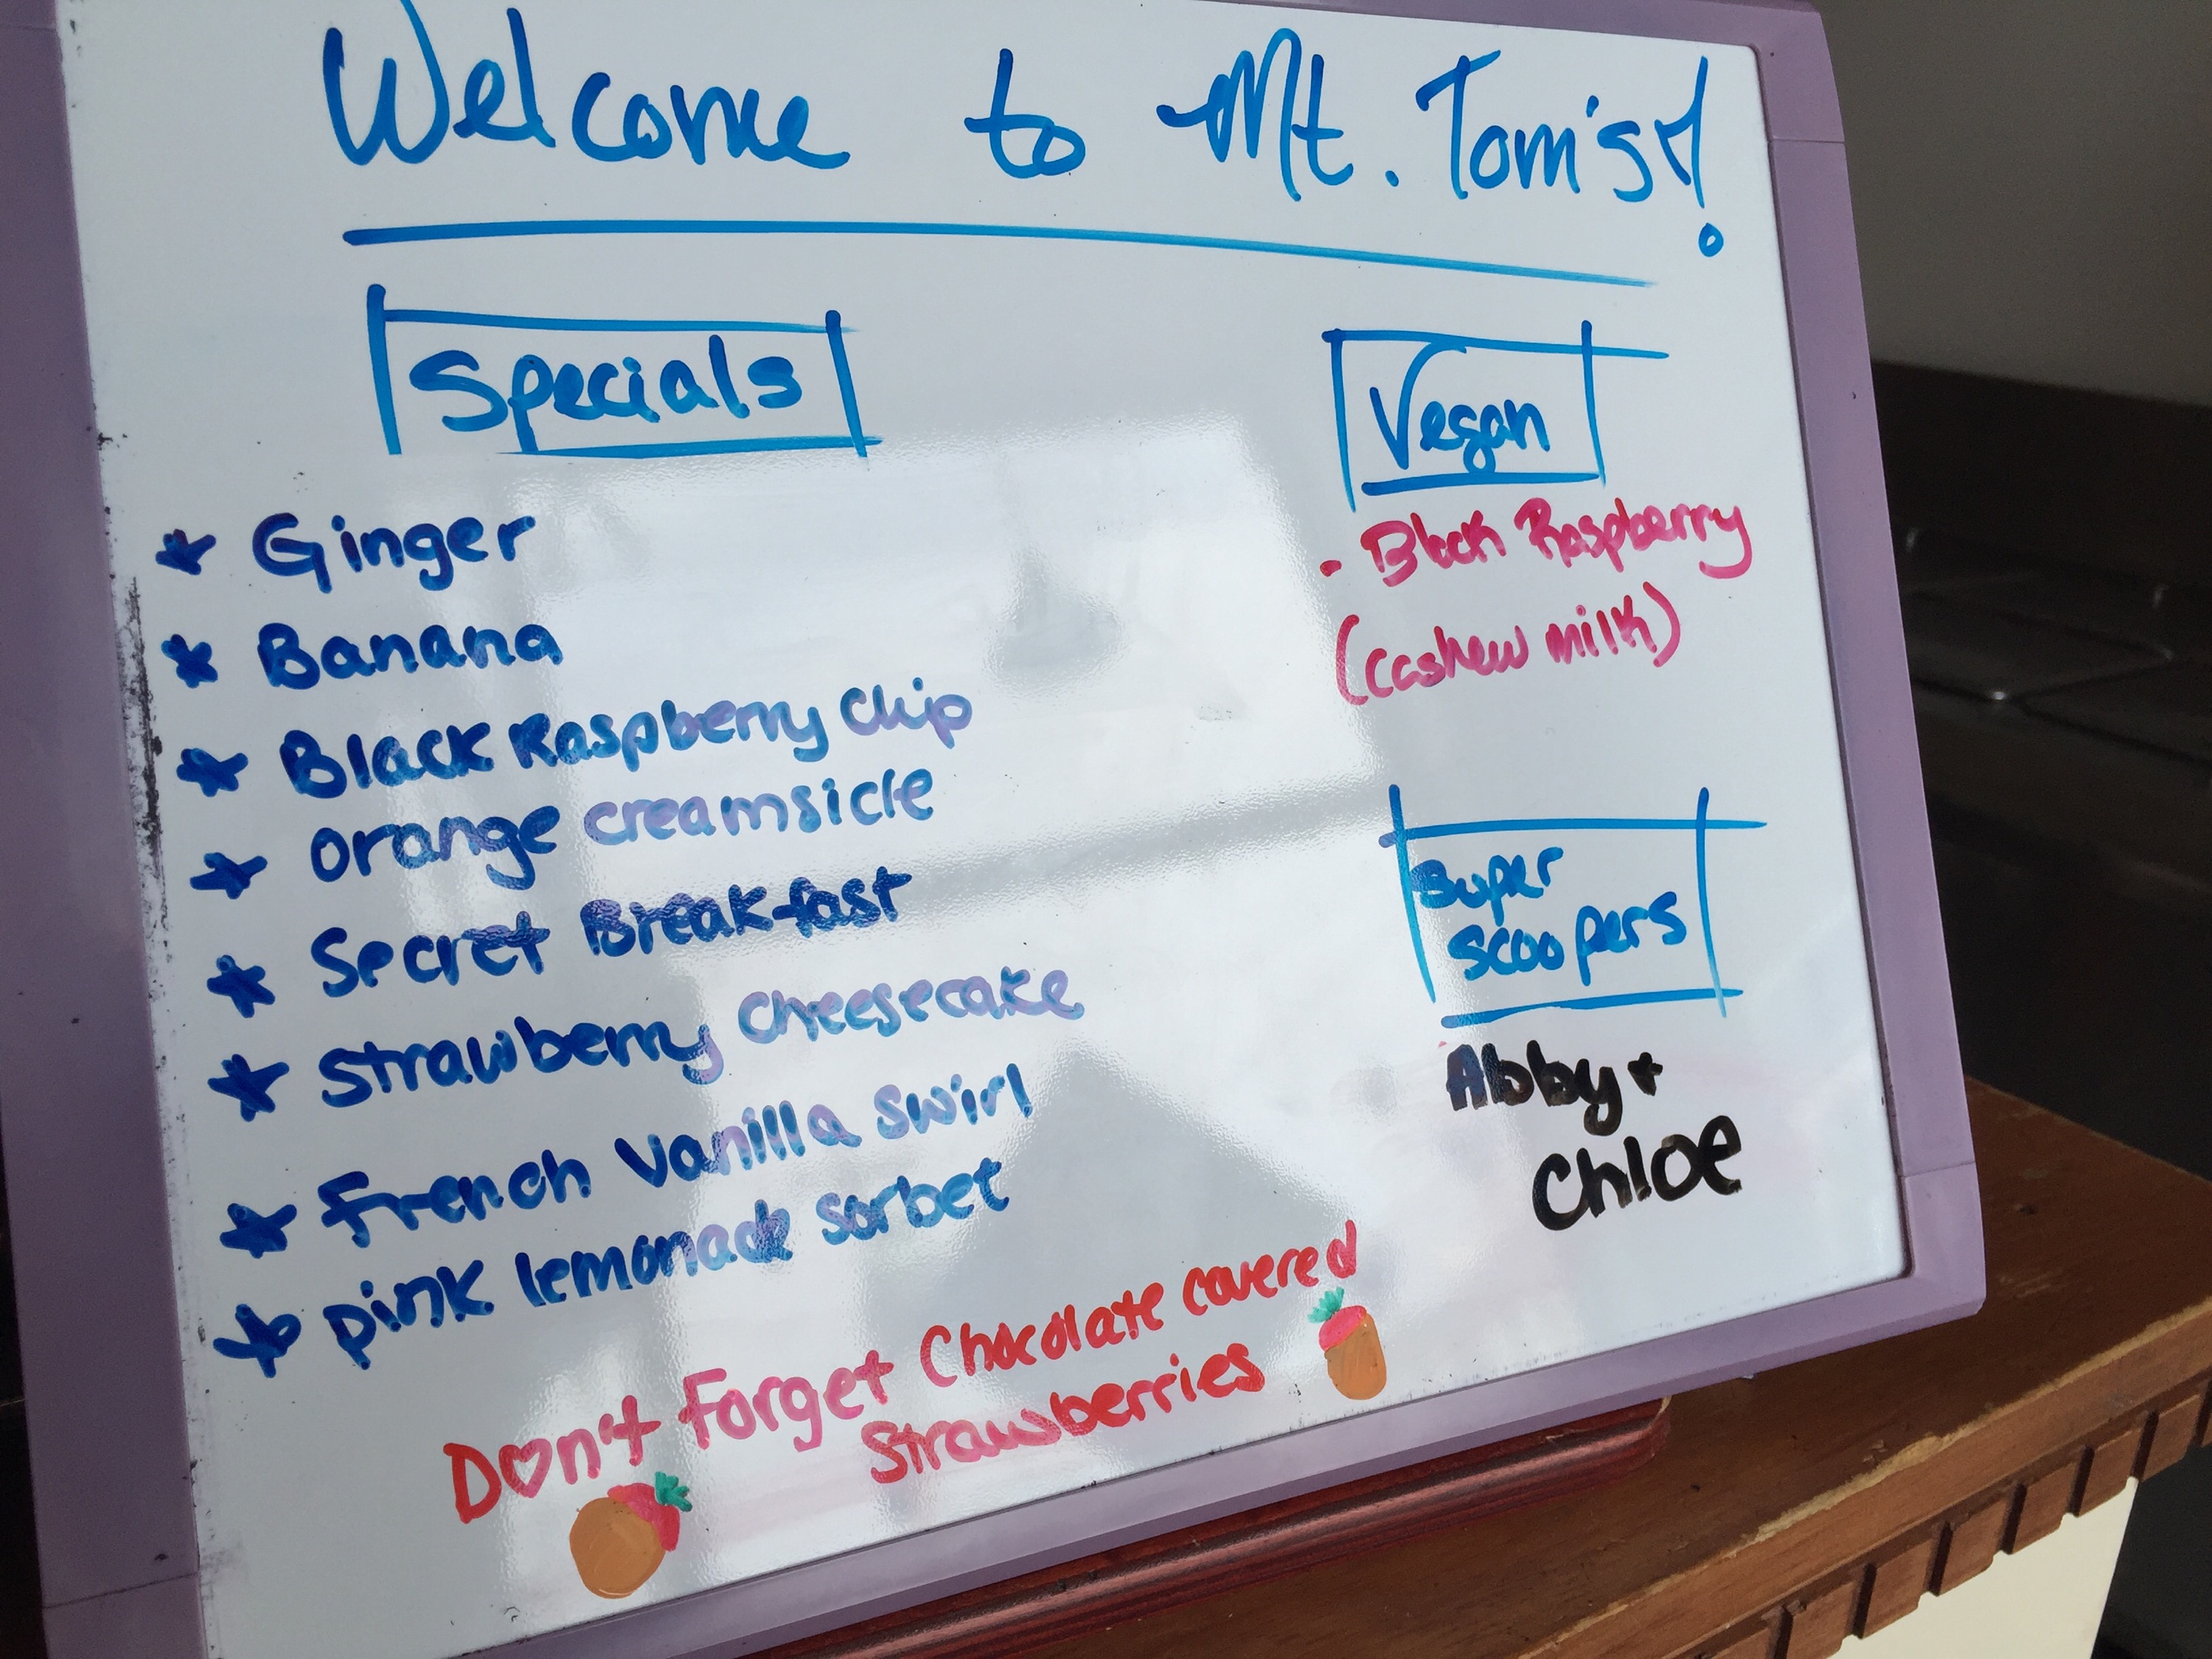 Welcome to Mt. Tom's!
Specials
* Ginger
* Banana
* Black Raspberry Chip
* orange creamsicle
* Secret Breakfast
* Strawberry Cheesecake
* French Vanilla Swirl
* pink lemonade sorbet
Vegan
- Black Raspberry
(cashew milk)
Super
scoopers
Abby +
Chloe
Don't Forget Chocolate covered
Strawberries